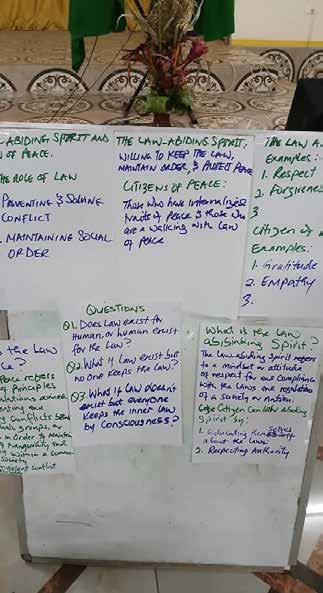 -ABIDING SPIRIT AND
N OF PEACE.
THE ROLE OF LAW
PREVENTING & SOLVING
CONFLICT
. MAINTAINING SOCIAL
ORDER
THE LAW-ABIDING SPIRIT:
WILLING TO KEEP THE LAW,
MAINTAIN ORDER, & PROTECT PEACE
CITIZENS OF PEACE:
Those who have internalized
traits of peace & those who
are a walking with Law
of Peace
THE LAW A
Examples:
1. Respect
2. Forgiveness
3
Citizen of
Examples:
1. Gratitude
2. Empathy
3.
the Law
ce?
Peace refers
Principles
conflicts
groups, or
in order to Maintain
within a
society
violent conflict
QUESTIONS
Q1. Does Law exist for
Human, or human exist
for the Law?
Q2. What if Law exist but
no one keeps the Law?
Q3. What if Law doesn't
exist but everyone
keeps the inner law
by consciousness?
What is the law
abiding Spirit?
The Law abiding Spirit refers
to a mindset or attitude
of respect for and Compliance
with the Laws and regulations
of a society or nation.
Citizen Can Law abiding
Spirit by:
1. Educating themselves
about the laws
2. Respecting Authority